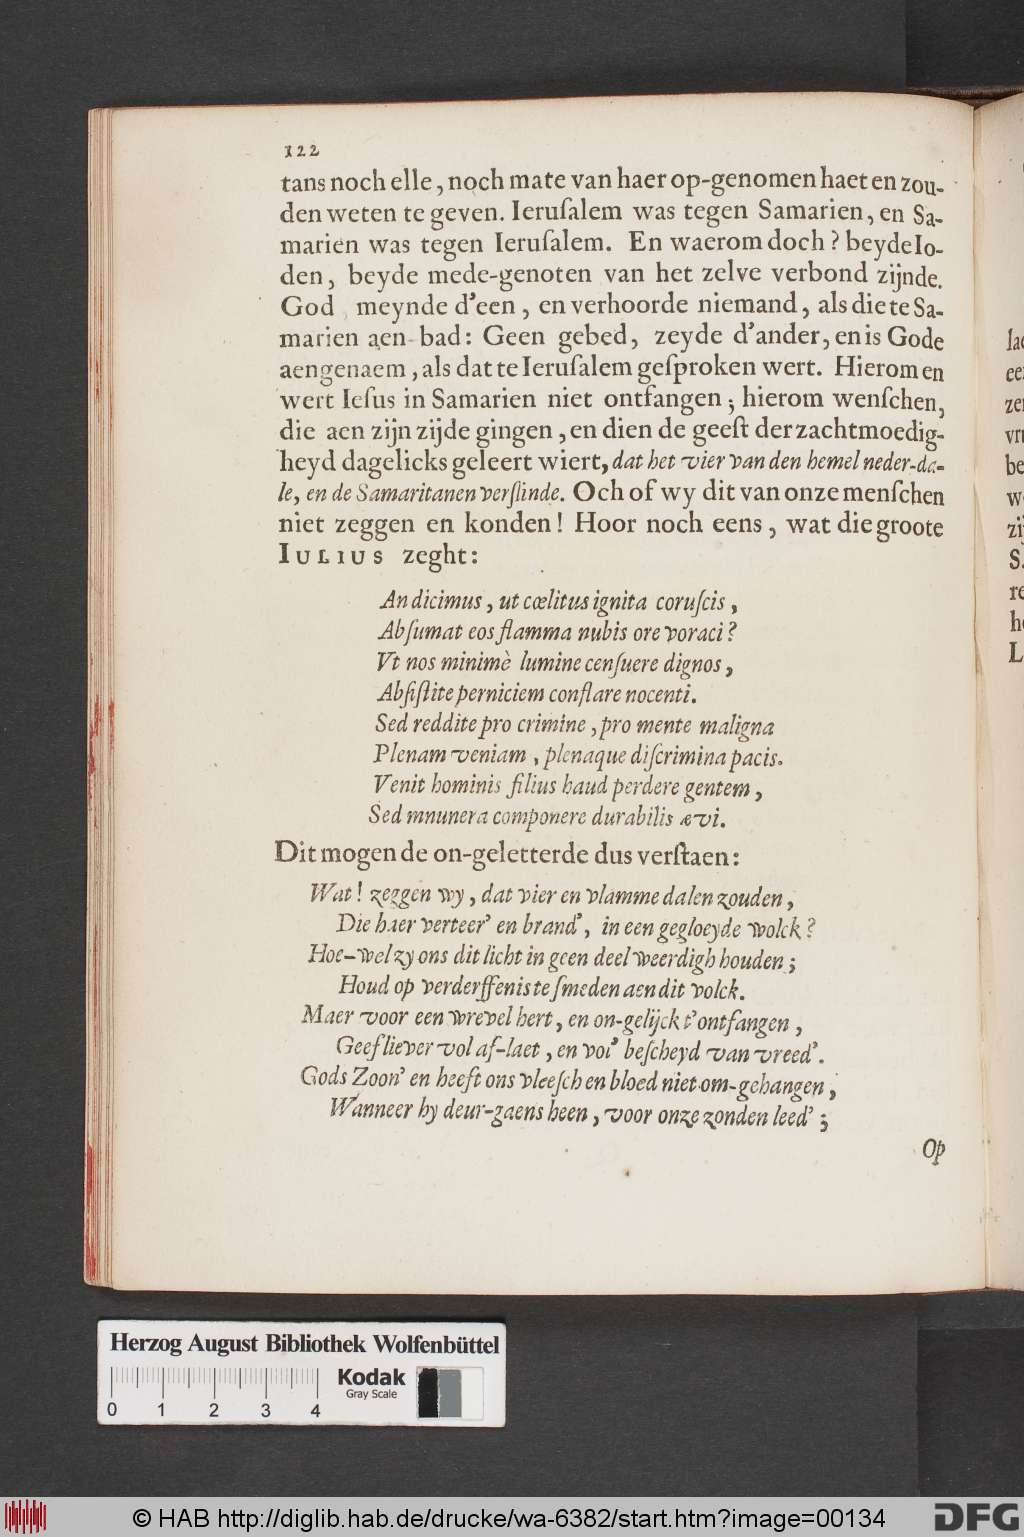 122
tans noch elle, noch mate van haer op-genomen haet en zou-
den weten te geven. Ieruſalem was tegen Samarien, en Sa-
marien was tegen Ieruſalem. En waerom doch? beyde Io-
den, beyde mede-genoten van het zelve verbond zijnde.
God meynde d'een, en verhoorde niemand, als die te Sa-
marien aen bad: Geen gebed, zeyde d'ander, en is Gode
aengenaem, als dat te Ieruſalem geſproken wert. Hierom en
wert Ieſus in Samarien niet ontfangen; hierom wenſchen,
die aen zijn zijde gingen, en dien de geeſt der zachtmoedig-
heyd dagelicks geleert wiert, dat het vier van den hemel neder-da-
le, en de Samaritanen verſlinde. Och of wy dit van onze menſchen
niet zeggen en konden! Hoor noch eens, wat die groote
IULIUS zeght:
An dicimus, ut cœlitus ignita coruſcis,
Abſumat eos flamma nubis ore voraci?
Vt nos minimè lumine cenſuere dignos,
Abſiſtite perniciem conflare nocenti.
Sed reddite pro crimine, pro mente maligna
Plenam veniam, plenaque diſcrimina pacis.
Venit hominis filius haud perdere gentem,
Sed mnunera componere durabilis ævi.
Dit mogen de on-geletterde dus verſtaen:
Wat! zeggen wy, dat vier en vlamme dalen zouden,
Die haer verteer' en brand', in een gegloeyde wolck?
Hoe-wel zy ons dit licht in geen deel weerdigh houden;
Houd op verderffenis te ſmeden aen dit volck.
Maer voor een wrevel hert, en on-gelijck t'ontfangen,
Geef liever vol af-laet, en voi' beſcheyd van vreed'.
Gods Zoon' en heeft ons vleeſch en bloed niet om-gehangen,
Wanneer hy deur-gaens heen, voor onze zonden leed';
Op
Iac
ee
ze
vri
be
w
zij
S.
re
he
L
Herzog August Bibliothek Wolfenbüttel
Kodak
Gray Scale
0 1 2 3 4
© HAB http://diglib.hab.de/drucke/wa-6382/start.htm?image=00134
DFG